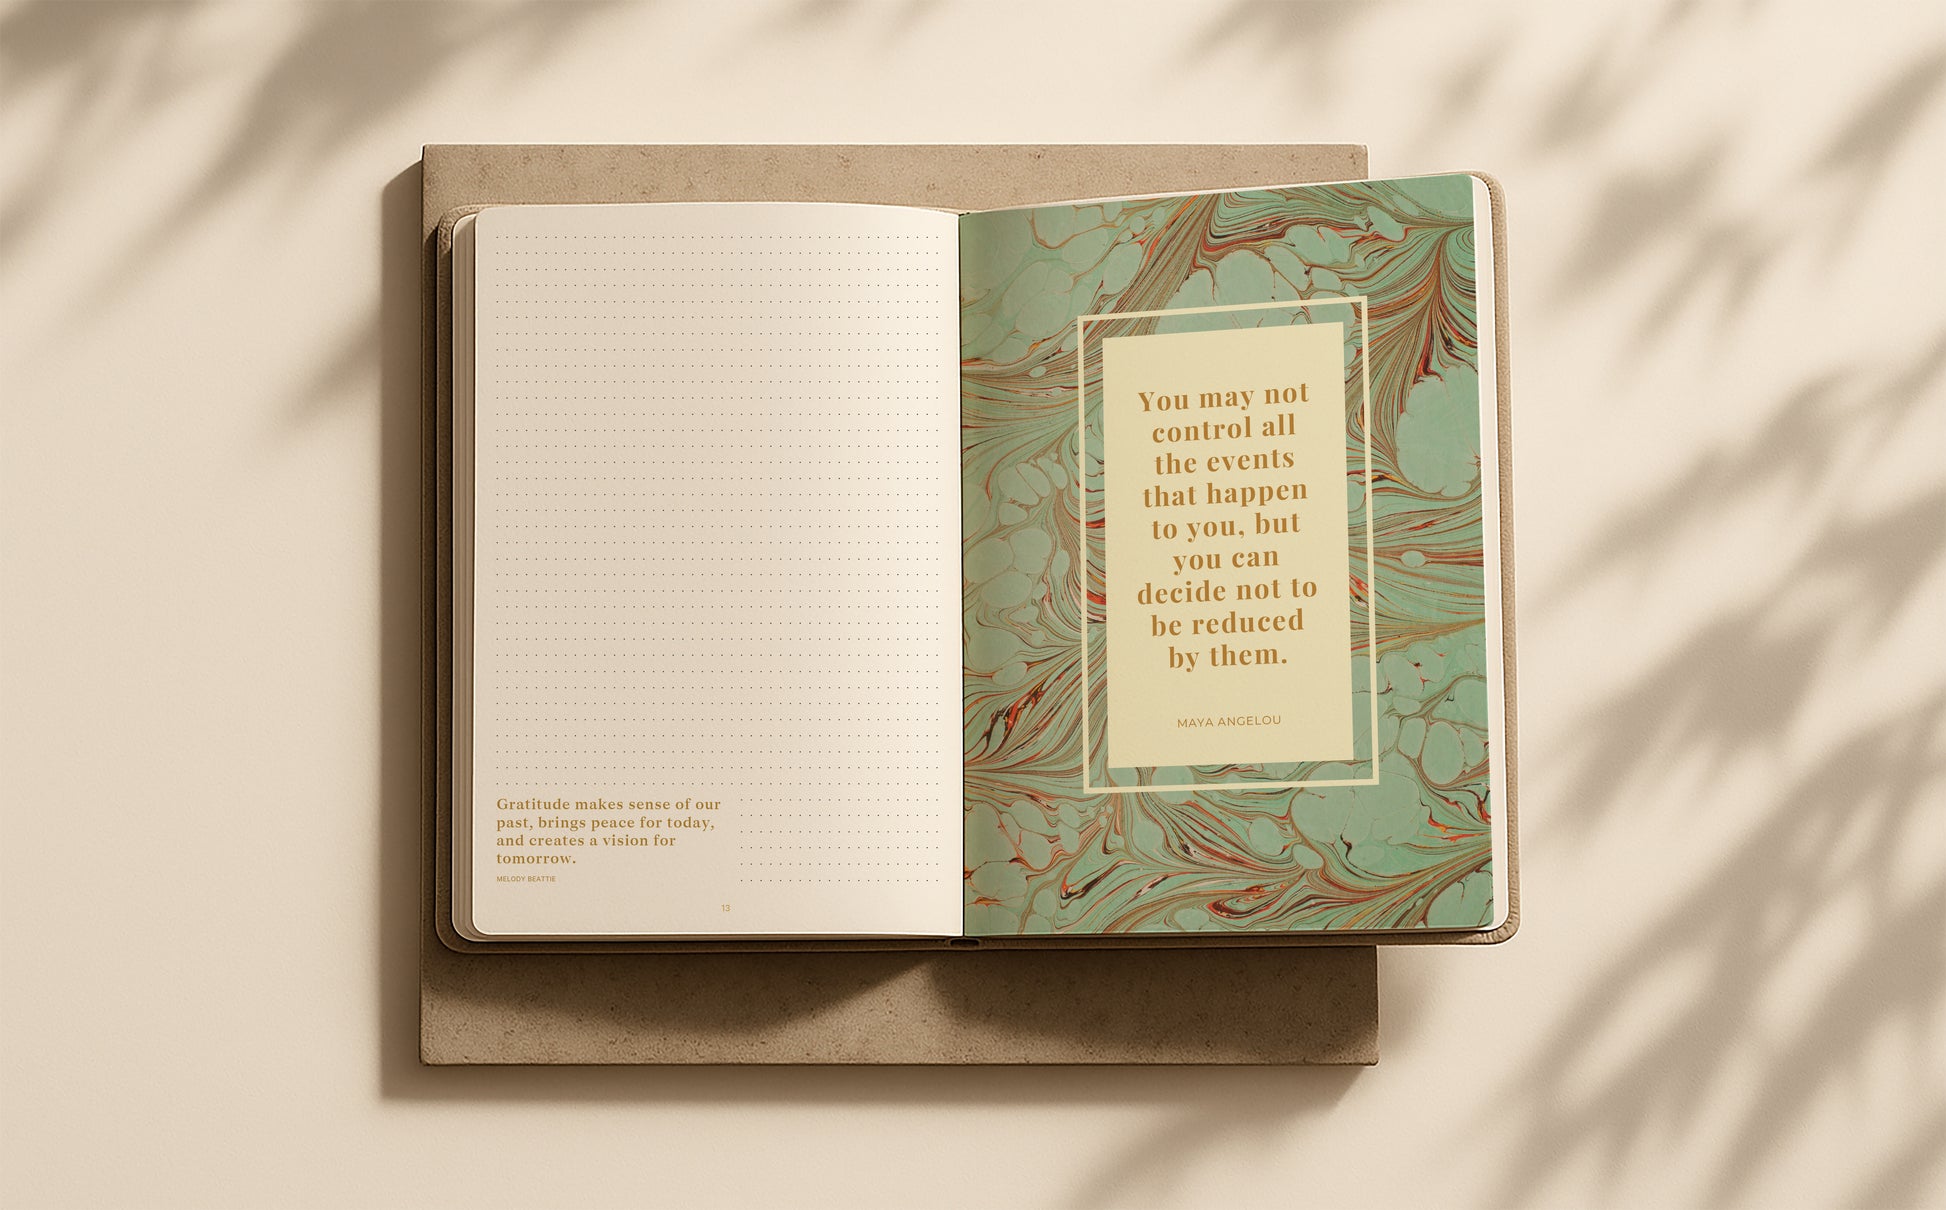 Gratitude makes sense of our
past, brings peace for today,
and creates a vision for
tomorrow.
MELODY BEATTIE
13
You may not
control all
the events
that happen
to you, but
you can
decide not to
be reduced
by them.
MAYA ANGELOU